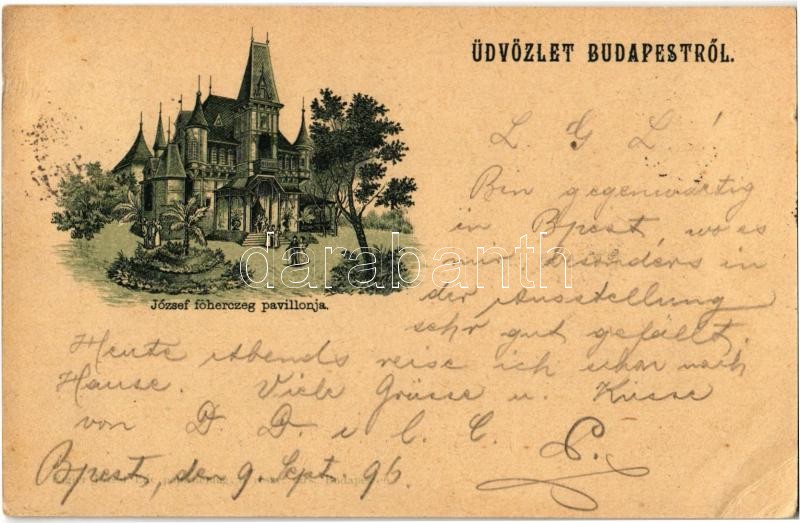 ÜDVÖZLET BUDAPESTRŐL.
L. G. L!
Bin gegenwärtig
in Bpest, wo es
mir, besonders in
der Ausstellung
sehr gut gefällt.
József főherczeg pavillonja.
Heute Abends reise ich nach
Hause. Viele Grüsse u. Küsse
von D. D. i. l. C.
Bpest, den 9. Sept. 96.
darabanth